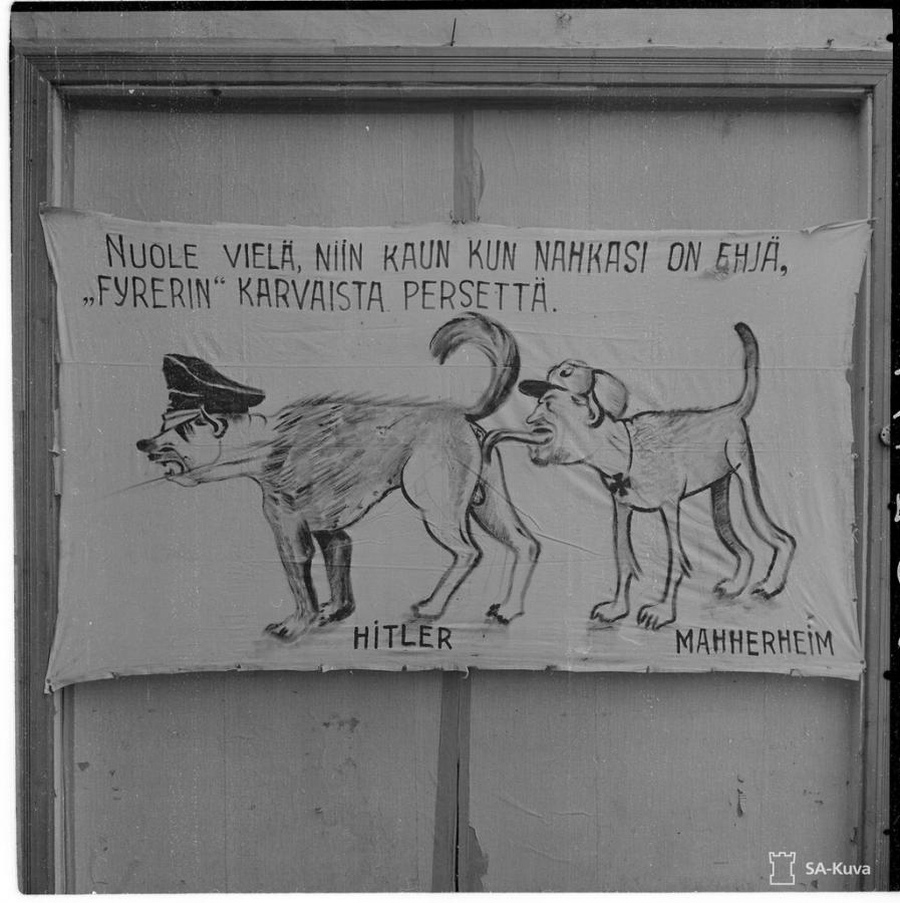 NUOLE VIELÄ, NIIN KAUN KUN NAHKASI ON EHJÄ,
„FYRERIN“ KARVAISTA PERSETTÄ.
HITLER
MAHHERHEIM
SA-Kuva